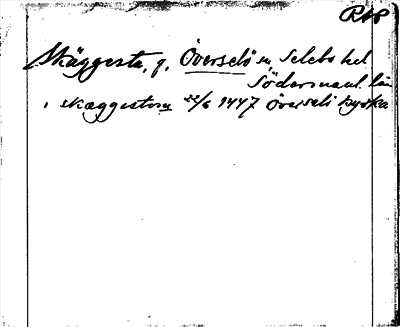 Skäggesta, g. Överselö sn, Selebo hd
Södermanl. län
i skæggestom 22/6 1447 Överselö kyrka